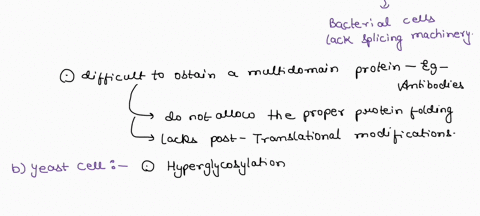 Bacterial cells
lack splicing machinery.
⊙ difficult to obtain a multidomain protein - Eg -
Antibodies
→ do not allow the proper protein folding
→ lacks post-Translational modifications.
b) yeast cell :- ⊙ Hyperglycosylation